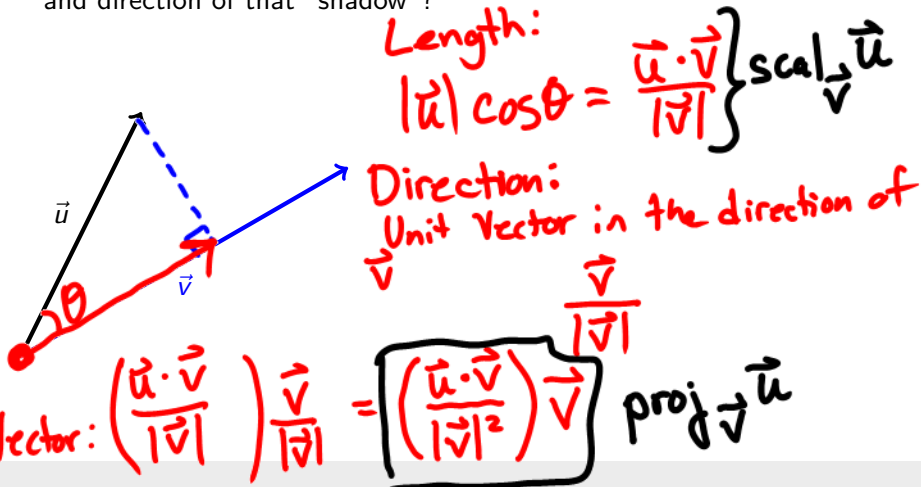 and direction of that "shadow"?
Length:
|u⃗| cosθ = (u⃗ · v⃗)/|v⃗| } scal_v⃗ u⃗
Direction:
Unit Vector in the direction of
v⃗
v⃗/|v⃗|
u⃗
v⃗
θ
Vector: ((u⃗ · v⃗)/|v⃗|) v⃗/|v⃗| = ((u⃗ · v⃗)/|v⃗|²) v⃗ proj_v⃗ u⃗